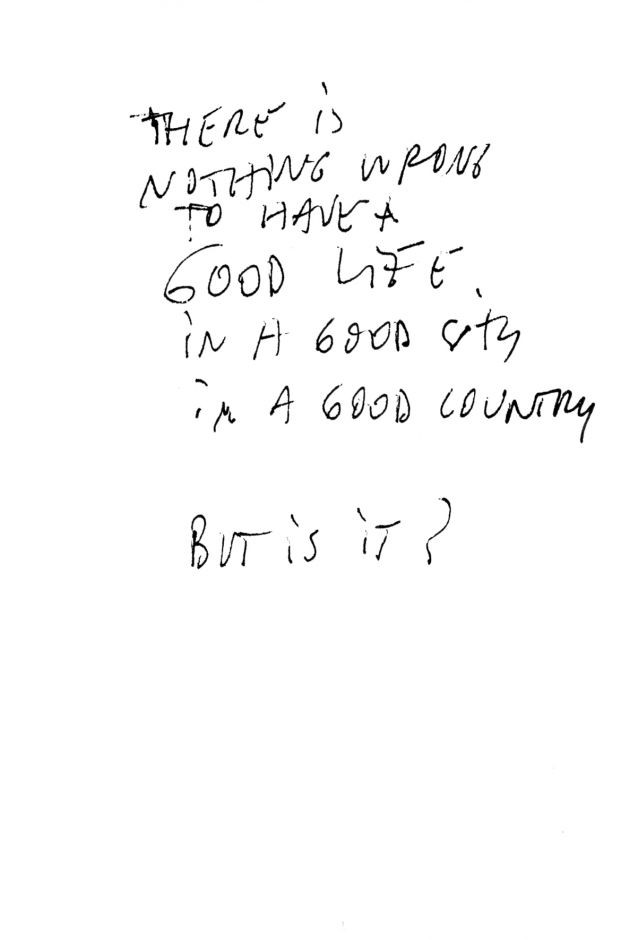 THERE iS
NOTHiNG WRONG
TO HAVE A
GOOD LIFE
iN A GOOD City
in A GOOD COUNTRy
BUT iS iT?